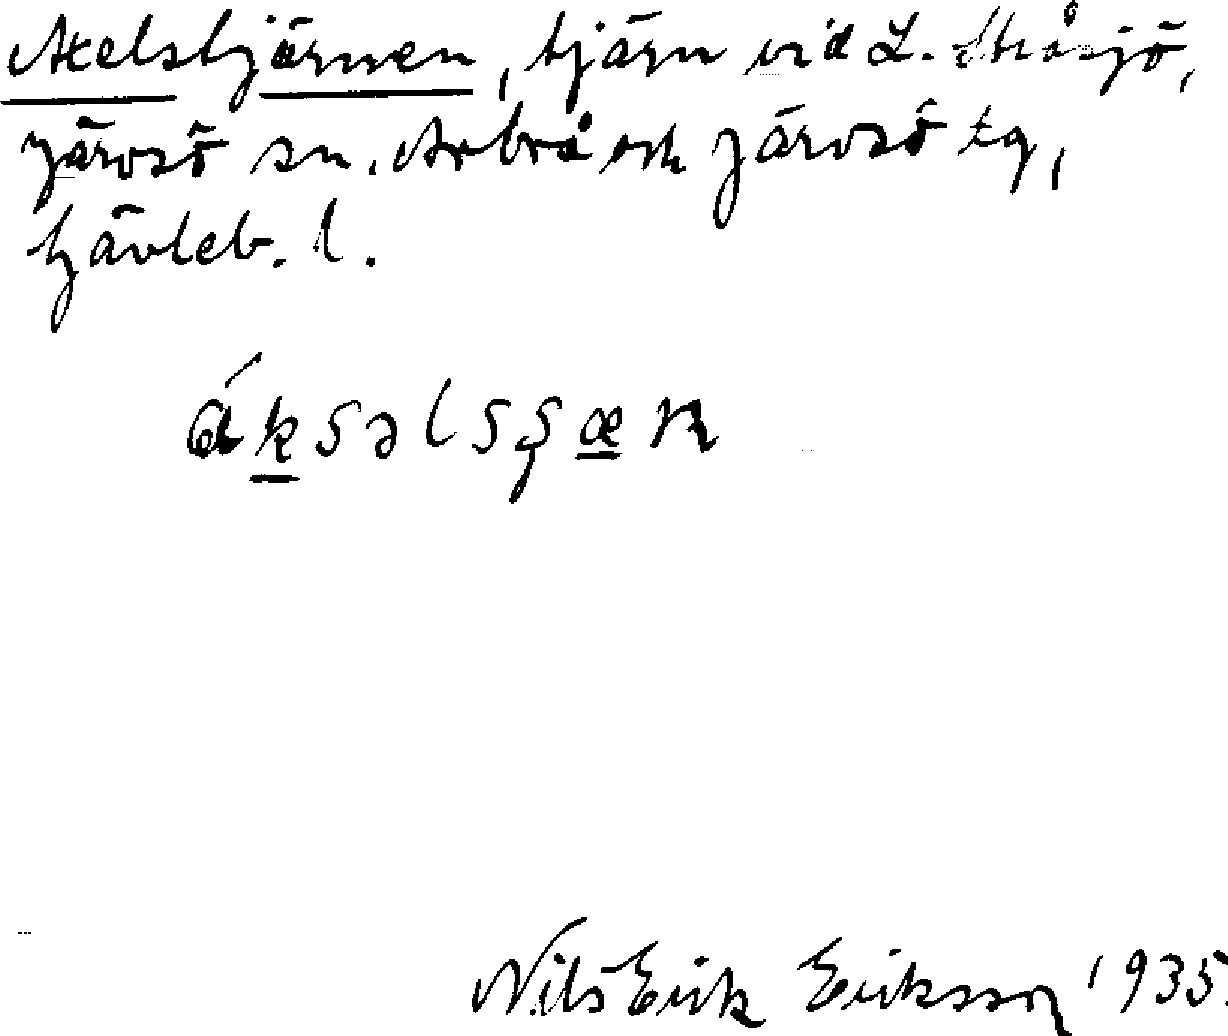 Axelstjärnen, tjärn vid L. Stråsjö,
Järvsö sn. Arbrå och Järvsö tg,
Gävleb. l.
áksəlsʂæn
Nils Erik Eriksson 1935.